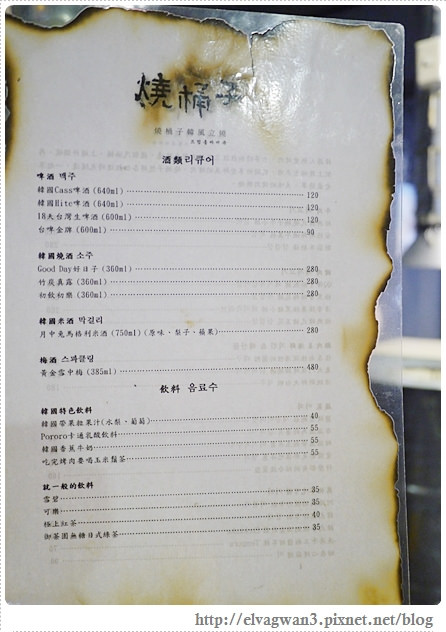 燒桶子
燒桶子韓風立燒
酒類리큐어
啤酒 맥주
韓國Cass啤酒(640ml) 120
韓國Hite啤酒(640ml) 120
18天台灣生啤酒(600ml) 120
台啤金牌(600ml) 90
韓國燒酒 소주
Good Day好日子(360ml) 280
竹炭真露(360ml) 280
初飲初樂(360ml) 280
韓國米酒 막걸리
月中兔馬格利米酒(750ml)(原味、梨子、蘋果) 280
梅酒 스파클링
黃金雪中梅(385ml) 480
飲料 음료수
韓國特色飲料
韓國帶果粒果汁(水梨、葡萄) 40
Pororo卡通乳酸飲料 55
韓國香蕉牛奶 55
吃完烤肉要喝玉米鬚茶 55
就一般的飲料
雪碧 35
可樂 35
極上紅茶 40
御茶園無糖日式綠茶 35
http://elvagwan3.pixnet.net/blog